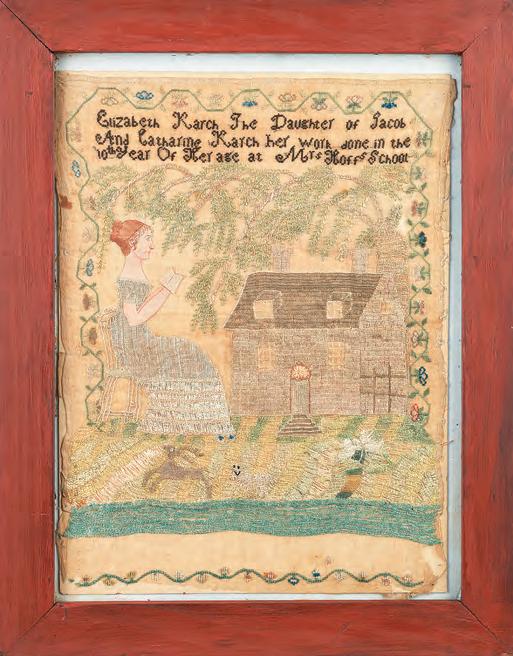 Elizabeth Karch The Daughter of Jacob
And Catharine Karch her work done in the
10th year Of Her age at Mrs Hoffs School